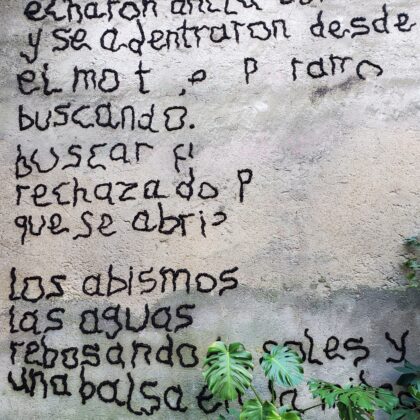 echaron ancla
y se adentraron desde
el
buscando.
buscar
rechazado
que se
los abismos
las aguas
rebosando soles y
una balsa en la